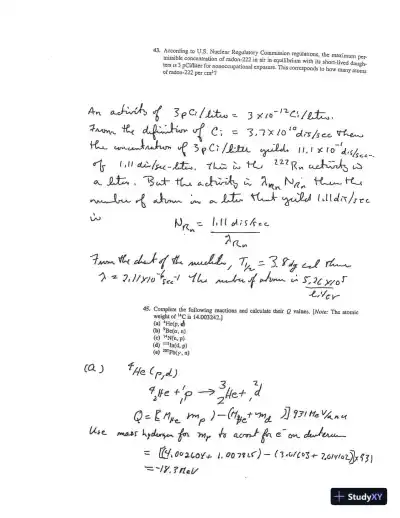 43. According to U.S. Nuclear Regulatory Commission regulations, the maximum per-
missible concentration of radon-222 in air in equilibrium with its short-lived daugh-
ters is 3 pCi/liter for nonoccupational exposure. This corresponds to how many atoms
of radon-222 per cm³?
An activity of 3 pCi/liter = 3 × 10⁻¹² Ci/liter.
From the definition of Ci = 3.7×10¹⁰ dis/sec then
the concentration of 3 pCi/liter yields 11.1 × 10⁻¹ dis/sec-
or 1.11 dis/sec-liter. This is the ²²²Rn activity in
a liter. But the activity is λRn NRn then the
number of atoms in a liter that yield 1.11 dis/sec
is
NRn = 1.11 dis/sec
λRn
From the chart of the nuclides, T½ = 3.8 dy and then
λ = 2.11×10⁻⁶ sec⁻¹ The number of atoms is 5.26 × 10⁵
liter
45. Complete the following reactions and calculate their Q values. [Note: The atomic
weight of ¹⁴C is 14.003242.]
(a) ⁴He(p, d)
(b) ⁹Be(α, n)
(c) ¹⁴N(n, p)
(d) ¹¹⁵In(d, p)
(e) ²⁰⁷Pb(γ, n)
(a) ⁴He(p,d)
⁴₂He + ¹₁p → ³₂He + ²₁d
Q = [(MHe + mp) – (MHe + md)] 931 MeV/amu
Use mass hydrogen for mp to account for e⁻ on deuterium
= [(4.002604 + 1.007825) – (3.01603 + 2.014102)] × 931
= -18.3 MeV
+ StudyXY